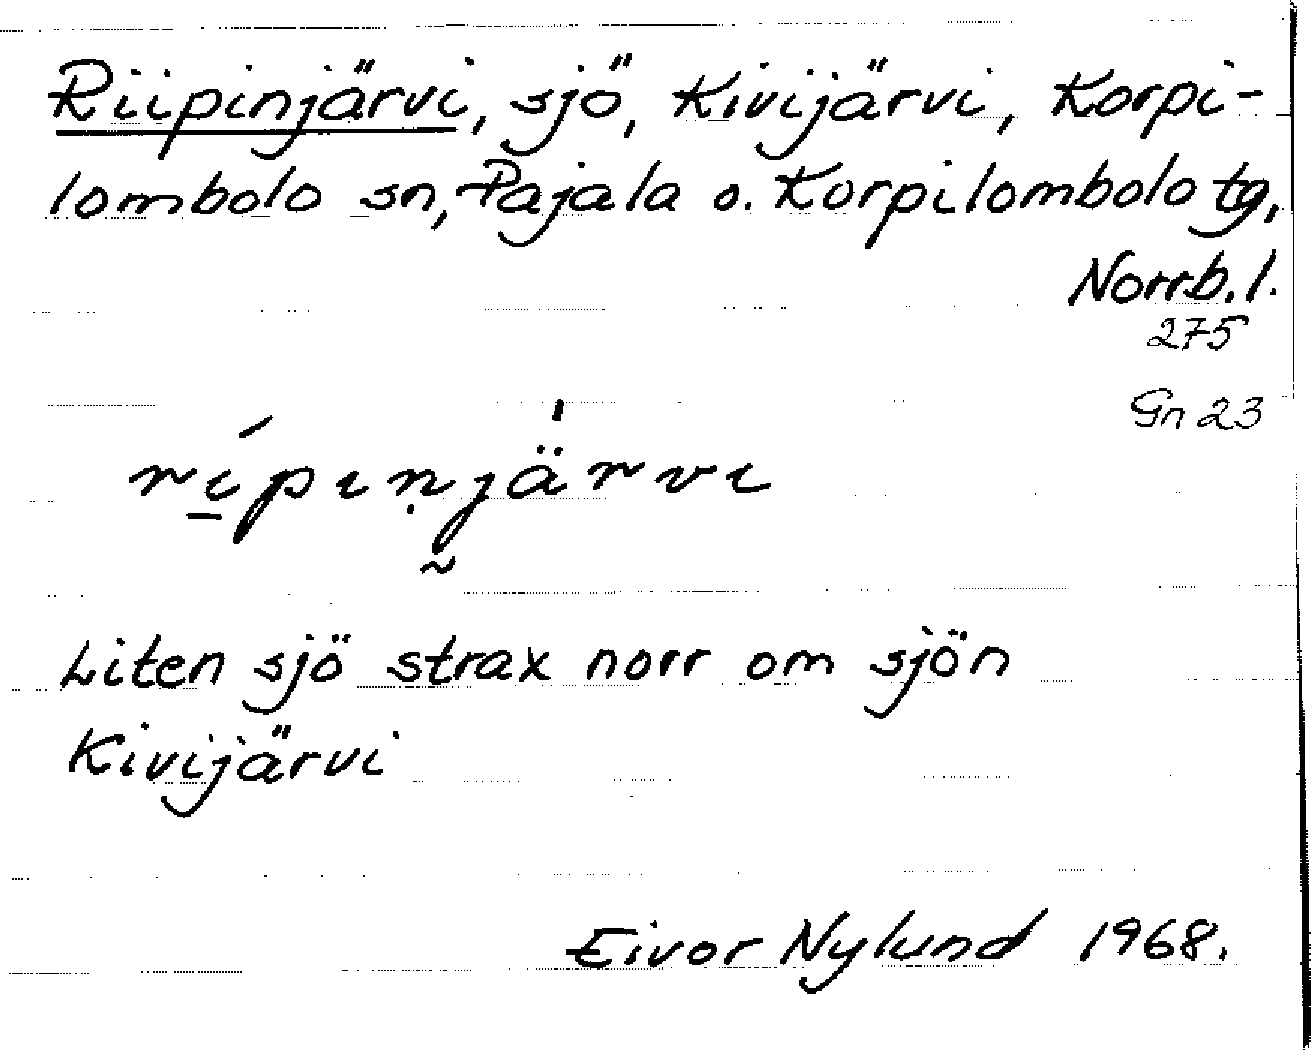 Riipinjärvi, sjö, Kivijärvi, Korpi-
lombolo sn, Pajala o. Korpilombolo tg,
Norrb. l.
275
Gn 23
rí̱pɩṇj̰ä̍rvɩ
Liten sjö strax norr om sjön
Kivijärvi
Eivor Nylund 1968.